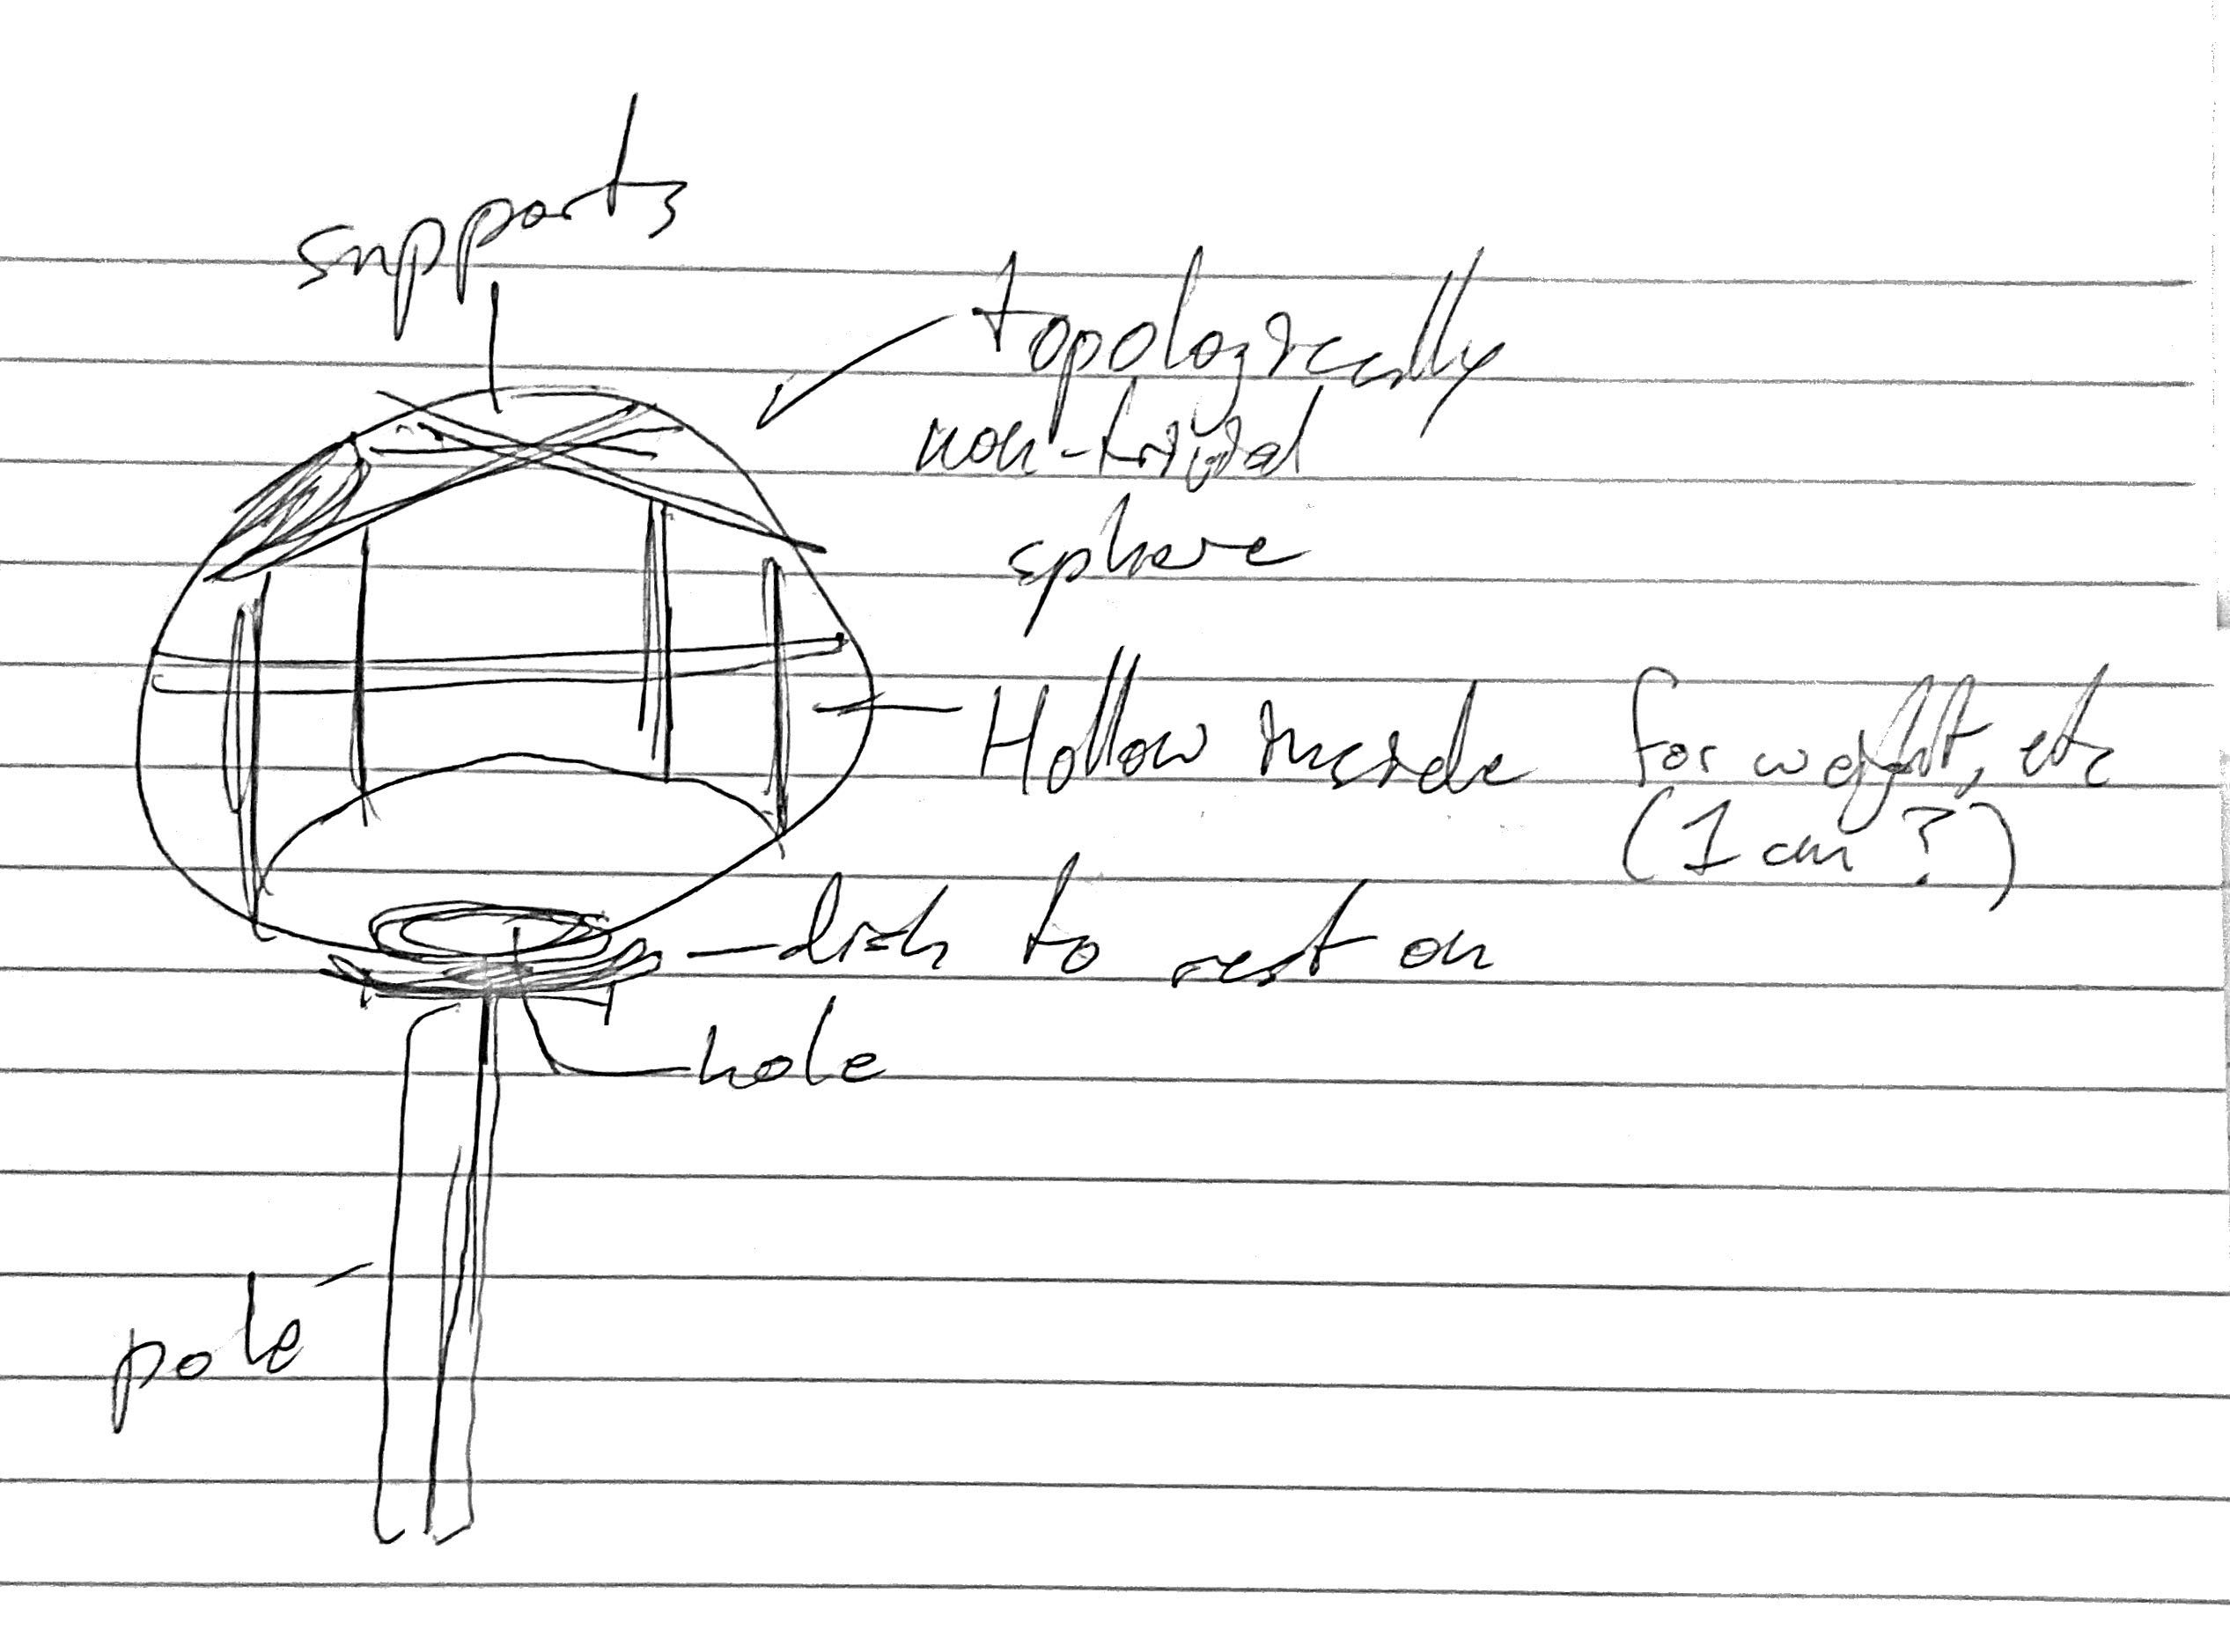 supports
topologically
non-trivial
sphere
Hollow inside for weight, etc
(1 cm?)
dish to rest on
hole
pole